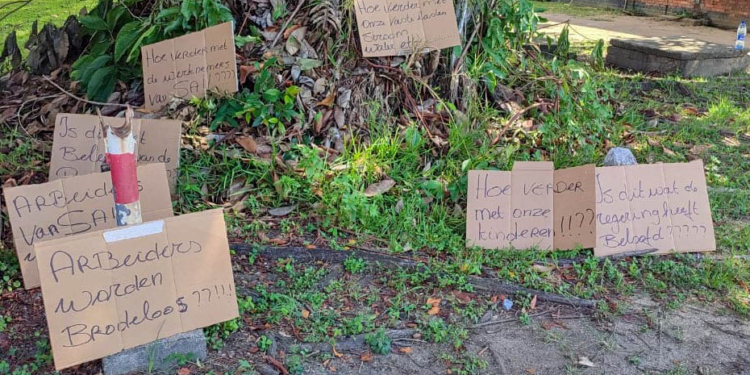 Hoe verder met
de werknemers
van SAIL???
Hoe verder met
onze vaste lasten
Stroom
water etc
Is dit
Beloofd
ARBeiders
van SAIL
ARBeiders
worden
Brodeloos??!!!
Hoe VERDER
met onze !!??
kinderen
Is dit wat de
regering heeft
Beloofd ?????